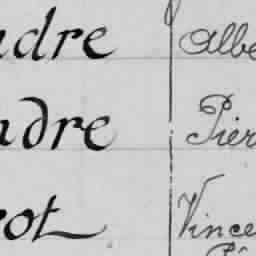 ndre Albe
ndre Pier
rot Vince